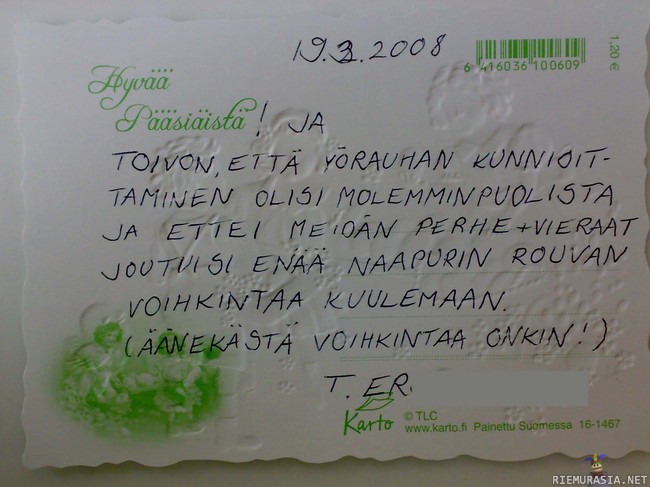 19.3.2008
6 416036 100609
1,20 €
Hyvää
Pääsiäistä! JA
TOIVON, ETTÄ YÖRAUHAN KUNNIOIT-
TAMINEN OLISI MOLEMMINPUOLISTA
JA ETTEI MEIDÄN PERHE+VIERAAT
JOUTUISI ENÄÄ NAAPURIN ROUVAN
VOIHKINTAA KUULEMAAN.
(ÄÄNEKÄSTÄ VOIHKINTAA ONKIN!)
T. ER.
Karto © TLC
www.karto.fi Painettu Suomessa 16-1467
RIEMURASIA.NET